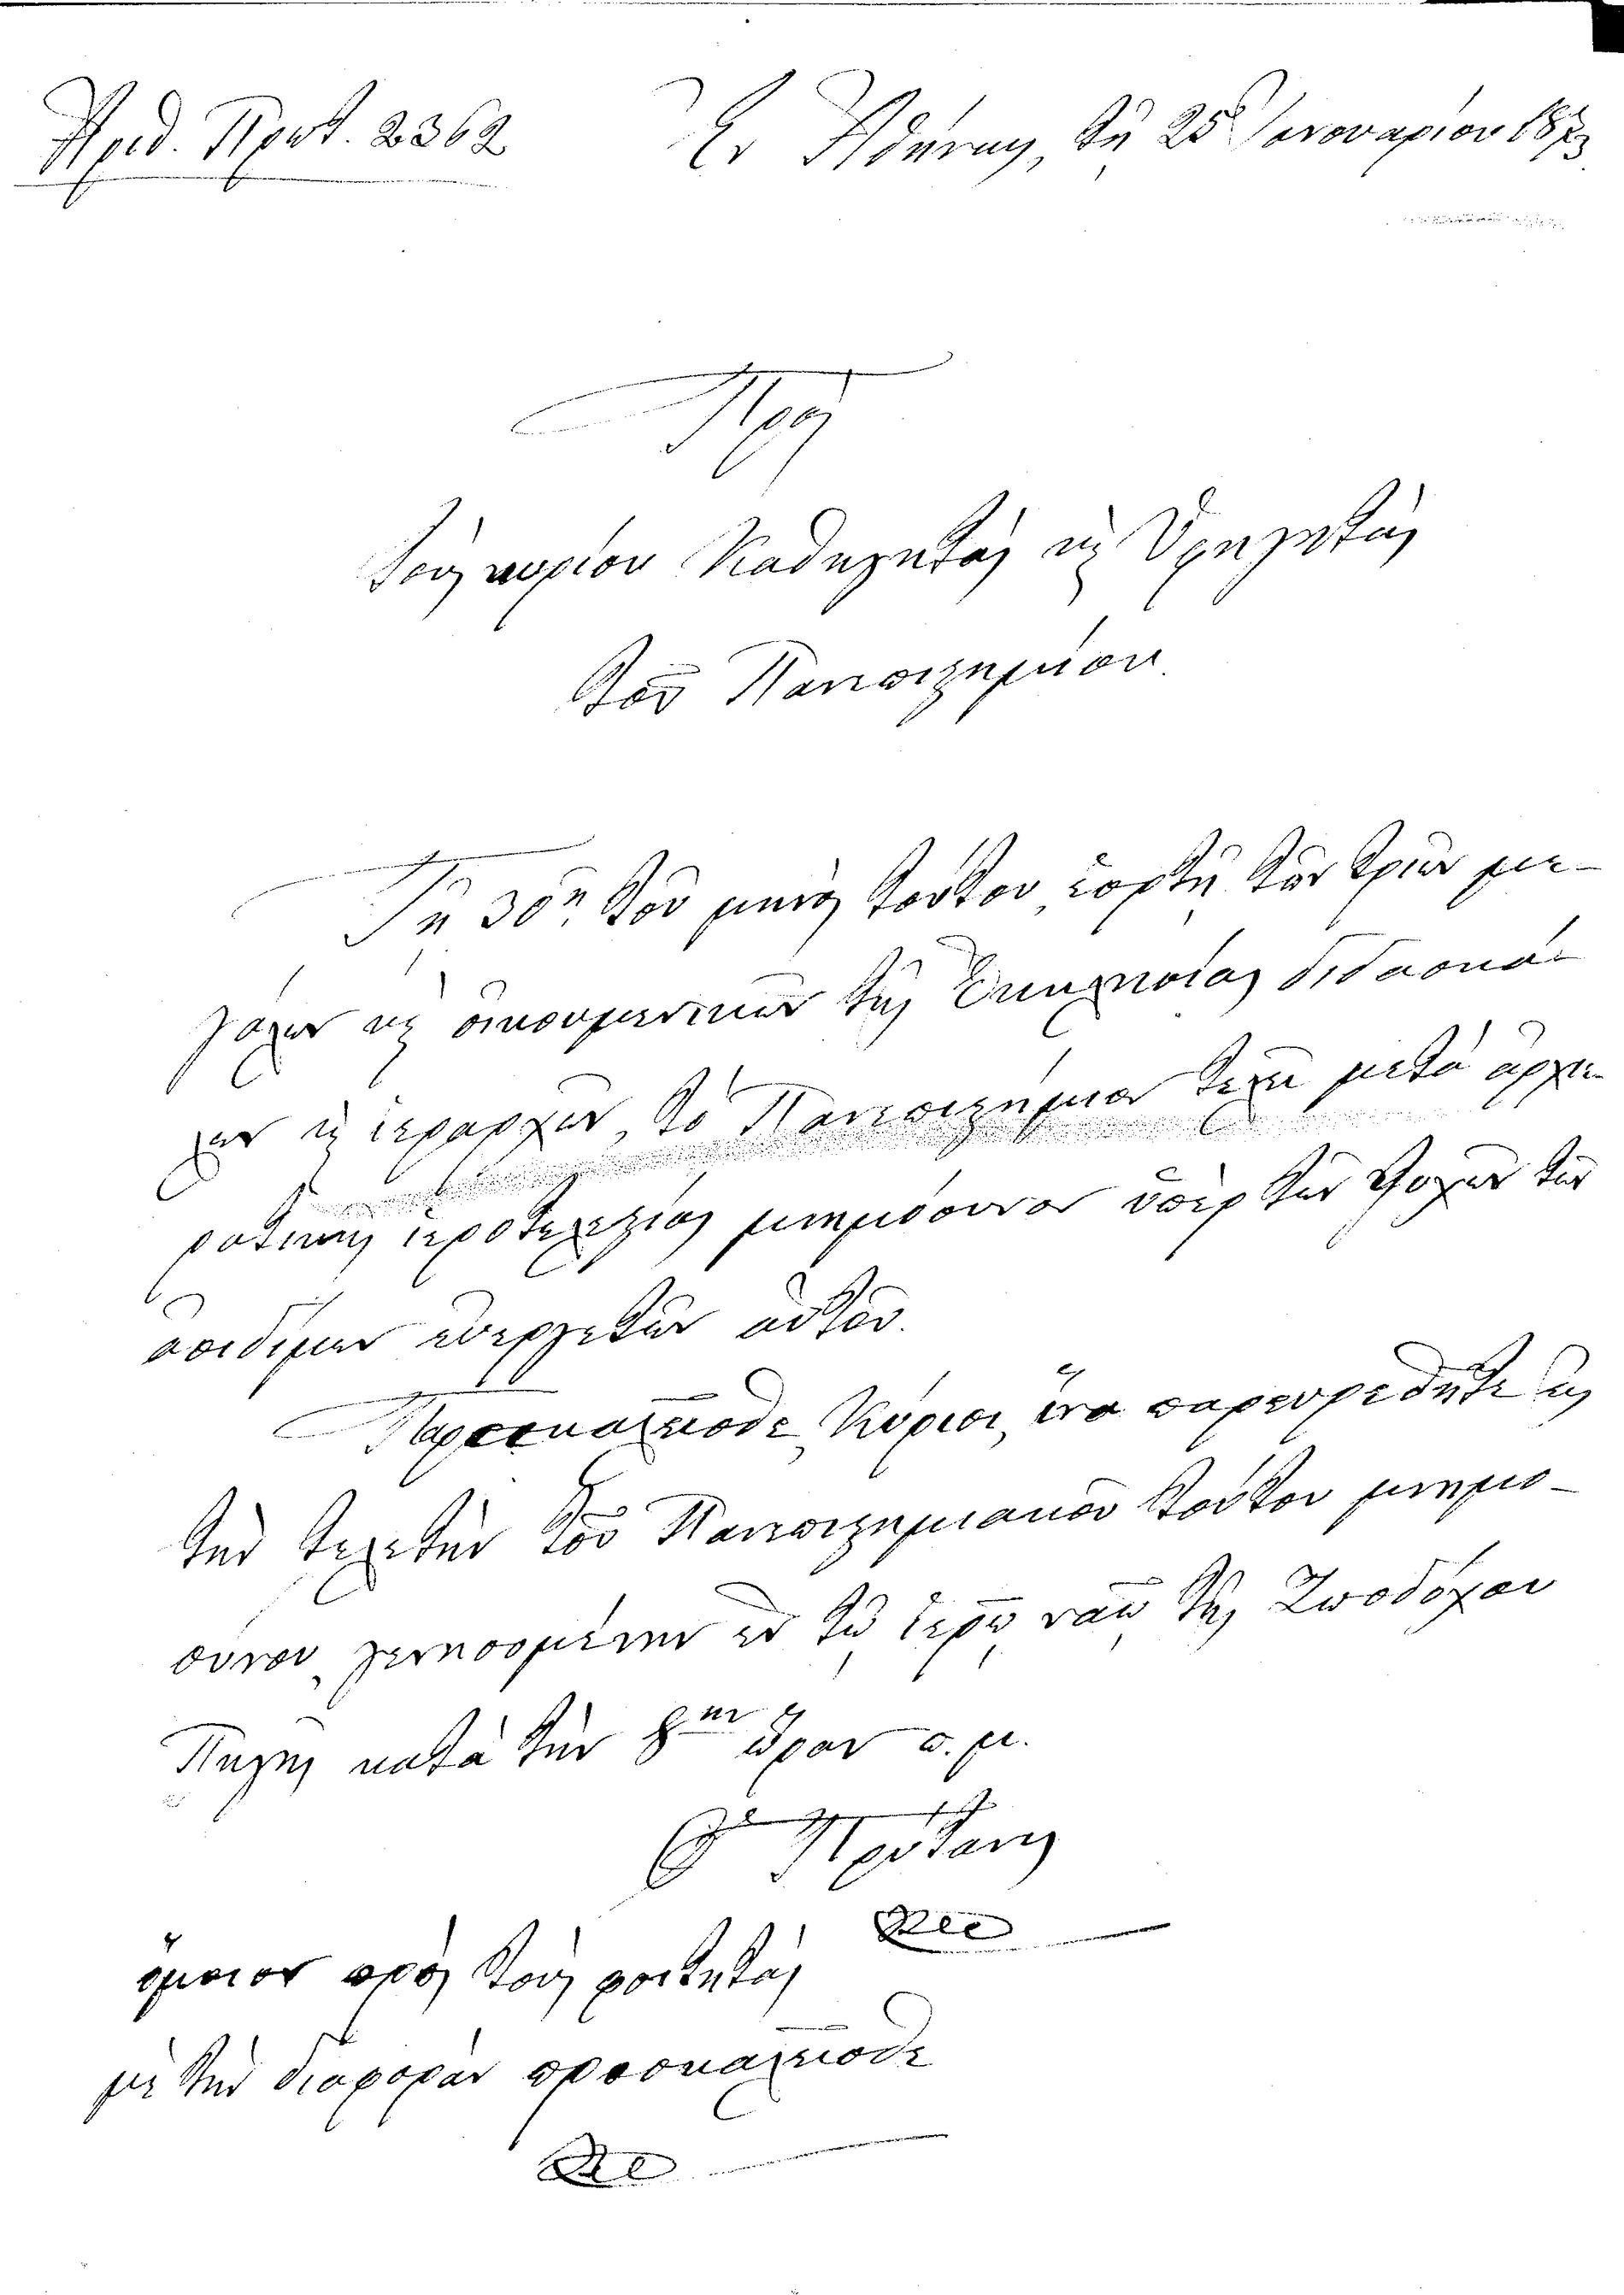 Ἀριθ. Πρωτ. 2362
Ἐν Ἀθήναις, τῇ 25 Ἰανουαρίου 1873
Πρὸς
τοὺς κυρίους Καθηγητὰς καὶ Ὑφηγητὰς
τοῦ Πανεπιστημίου.
Τῇ 30ῃ τοῦ μηνὸς τούτου, ἑορτῇ τῶν τριῶν με-
γάλων καὶ οἰκουμενικῶν τῆς Ἐκκλησίας διδασκά-
λων καὶ ἱεραρχῶν, τὸ Πανεπιστήμιον τελεῖ μετὰ ἀρχιε-
ρατικῆς ἱεροτελεστίας μνημόσυνον ὑπὲρ τῶν ψυχῶν τῶν
ἀοιδίμων εὐεργετῶν αὐτοῦ.
Προσκαλεῖσθε, Κύριοι, ἵνα παρευρεθῆτε εἰς
τὴν τελετὴν τοῦ Πανεπιστημιακοῦ τούτου μνημο-
σύνου, γενησομένην ἐν τῷ ἱερῷ ναῷ τῆς Ζωοδόχου
Πηγῆς κατὰ τὴν ὥραν π. μ.
Ὁ Πρύτανις
ὅμοιον πρὸς τοὺς φοιτητὰς
μὲ τὴν διαφορὰν προσκαλεῖσθε